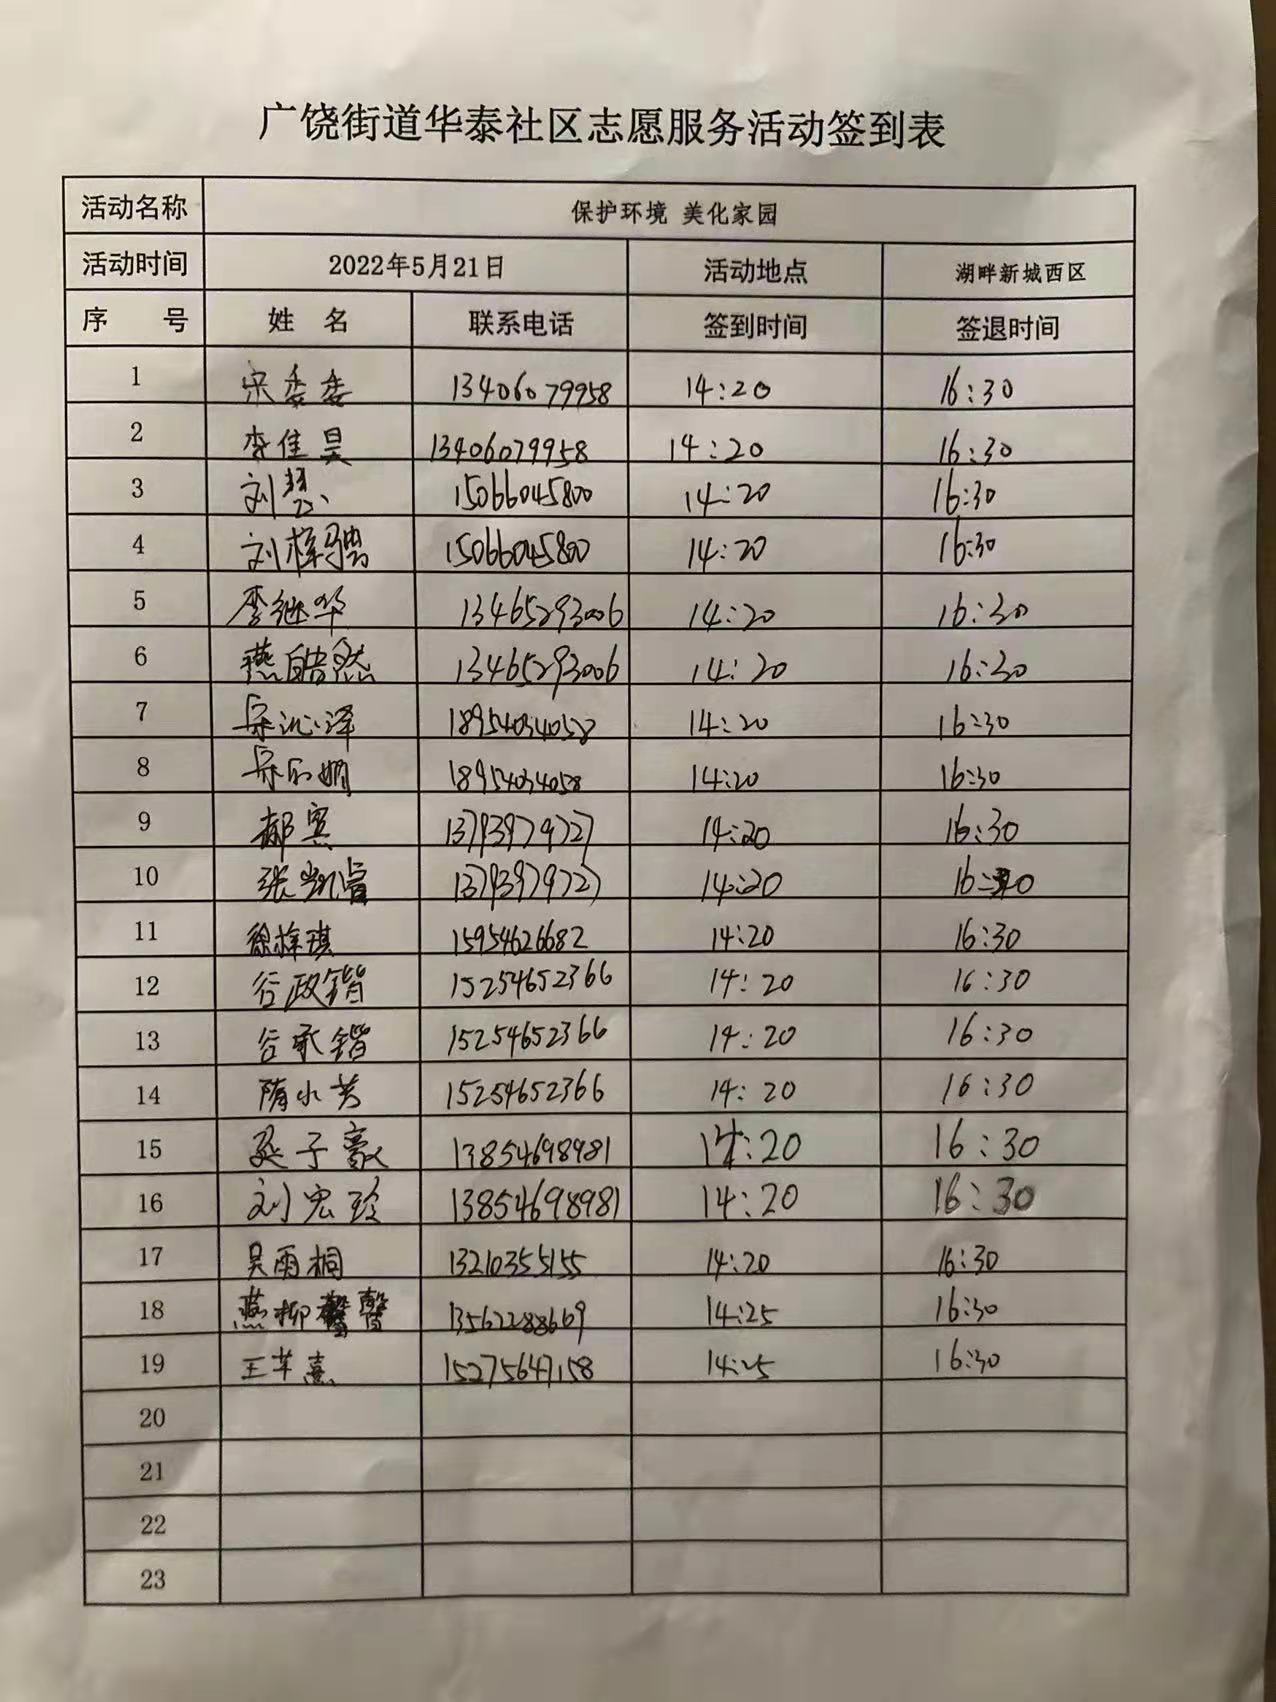 广饶街道华泰社区志愿服务活动签到表
活动名称 保护环境 美化家园
活动时间 2022年5月21日 活动地点 湖畔新城西区
序 号 姓 名 联系电话 签到时间 签退时间
1 宋委委 13406079958 14:20 16:30
2 李佳昊 13406079958 14:20 16:30
3 刘慧 15066045800 14:20 16:30
4 刘梓骋 15066045800 14:20 16:30
5 李继华 13465293006 14:20 16:30
6 燕皓然 13465293006 14:20 16:30
7 沁泽 18954034058 14:20 16:30
8 18954034058 14:20 16:30
9 郝宾 13793979727 14:20 16:30
10 张凯睿 13793979727 14:20 16:30
11 徐梓琪 15954626682 14:20 16:30
12 谷政锴 15254652366 14:20 16:30
13 谷承锴 15254652366 14:20 16:30
14 隋水芳 15254652366 14:20 16:30
15 子豪 13854698981 14:20 16:30
16 刘宏玲 13854698981 14:20 16:30
17 吴雨桐 13210355155 14:20 16:30
18 燕柳馨 13562288669 14:25 16:30
19 王芊熹 15275647158 14:25 16:30
20
21
22
23